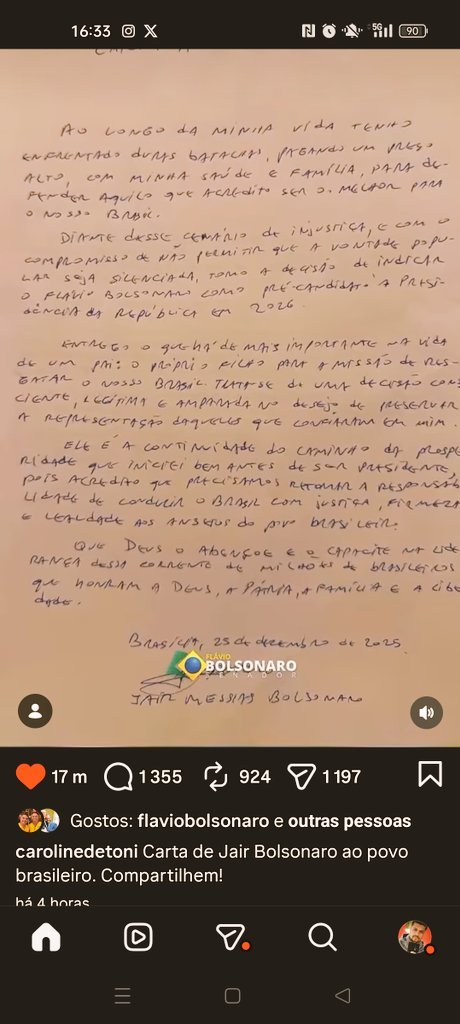 16:33
5G
90
AO LONGO DA MINHA VIDA TENHO
ENFRENTADO DURAS BATALHAS, PAGANDO UM PREÇO
ALTO, COM MINHA SAÚDE E FAMÍLIA, PARA DE-
FENDER AQUILO QUE ACREDITO SER O MELHOR PARA
O NOSSO BRASIL.
DIANTE DESSE CENÁRIO DE INJUSTIÇA, E COM O
COMPROMISSO DE NÃO PERMITIR QUE A VONTADE POPU-
LAR SEJA SILENCIADA, TOMO A DECISÃO DE INDICAR
O FLÁVIO BOLSONARO COMO PRÉ-CANDIDATO À PRESI-
DÊNCIA DA REPÚBLICA EM 2026.
ENTREGO O QUE HÁ DE MAIS IMPORTANTE NA VIDA
DE UM PAI: O PRÓPRIO FILHO PARA A MISSÃO DE RES-
GATAR O NOSSO BRASIL. TRATA-SE DE UMA DECISÃO CONS
CIENTE, LEGÍTIMA E AMPARADA NO DESEJO DE PRESERVAR
A REPRESENTAÇÃO DAQUELES QUE CONFIARAM EM MIM.
ELE É A CONTINUIDADE DO CAMINHO DA PROSPE
RIDADE QUE INICIEI BEM ANTES DE SER PRESIDENTE,
POIS ACREDITO QUE PRECISAMOS RETOMAR A RESPONSABI
LIDADE DE CONDUZIR O BRASIL COM JUSTIÇA, FIRMEZA
E LEALDADE AOS ANSEIOS DO POVO BRASILEIRO.
QUE DEUS O ABENÇOE E O CAPACITE NA LIDE
RANÇA DESSA CORRENTE DE MILHÕES DE BRASILEIROS
QUE HONRAM A DEUS, A PÁTRIA, A FAMÍLIA E A LIBE
DADE.
BRASÍLIA, 25 DE DEZEMBRO DE 2025.
FLÁVIO
BOLSONARO
SENADOR
JAIR MESSIAS BOLSONARO
17 m 1 355 924 1 197
Gostos: flaviobolsonaro e outras pessoas
carolinedetoni Carta de Jair Bolsonaro ao povo
brasileiro. Compartilhem!
há 4 horas